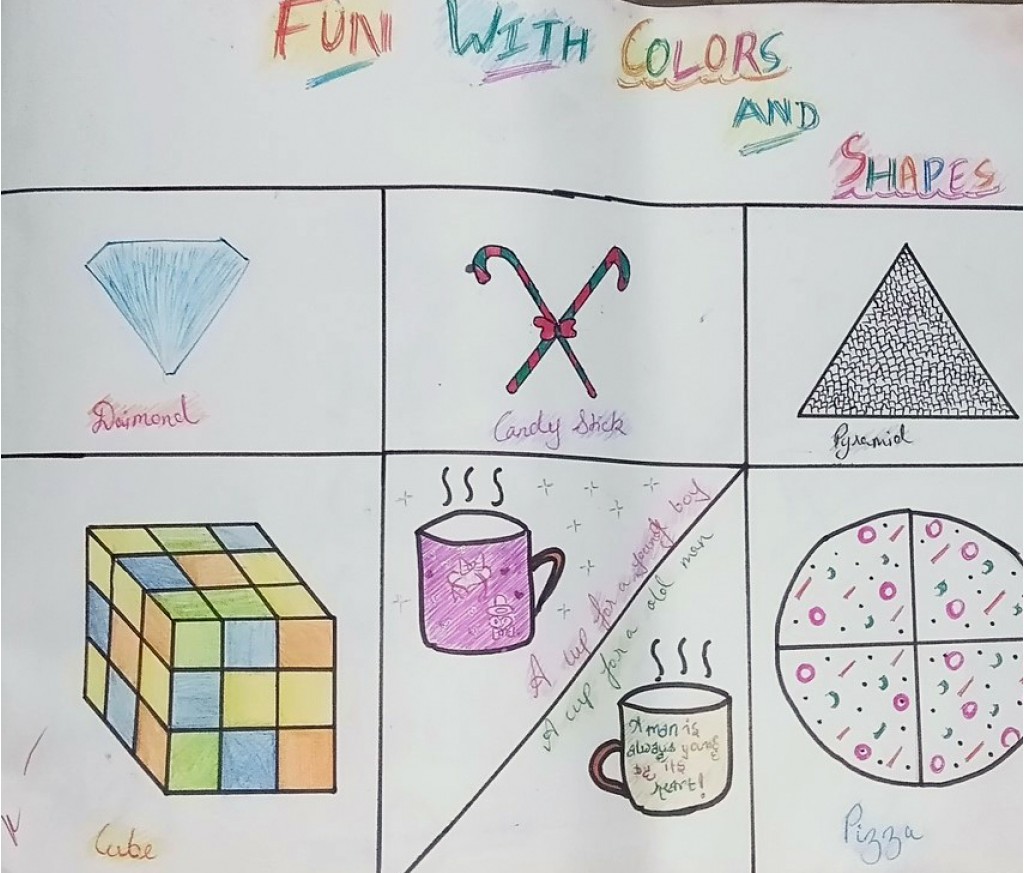 FUN WITH COLORS
AND
SHAPES
Daimond
Candy Stick
Pyramid
A cup for a young boy
A cup for a old man
A man is
always young
by its
heart!
Cube
Pizza